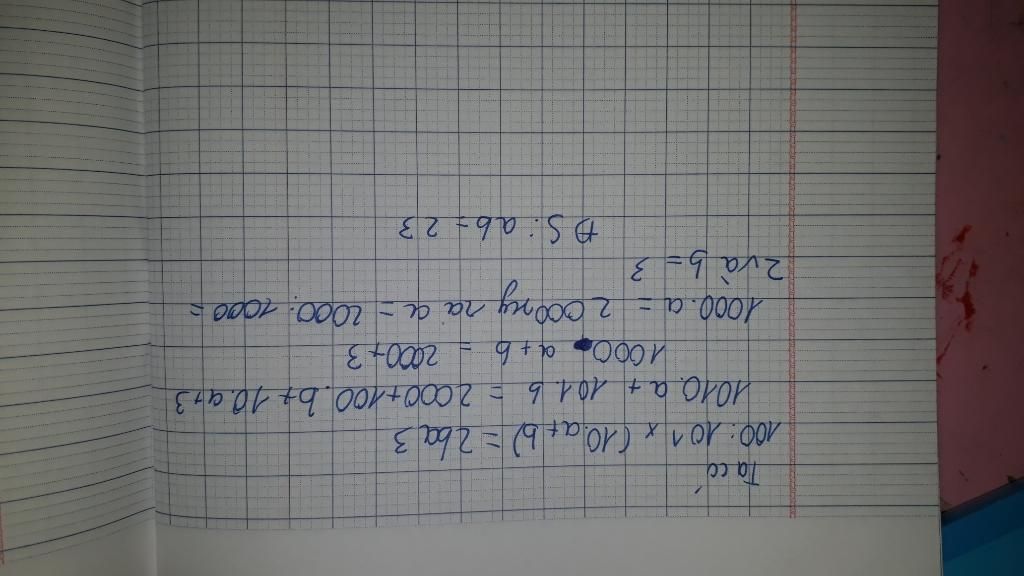 Ta có
100:101 x (10.a+b) = 2ba3
1010.a + 101.b = 2000+100.b+10.a+3
1000.a+b = 2000+3
1000.a = 2000 ny ra a = 2000:1000 =
2 và b = 3
ĐS: ab = 23